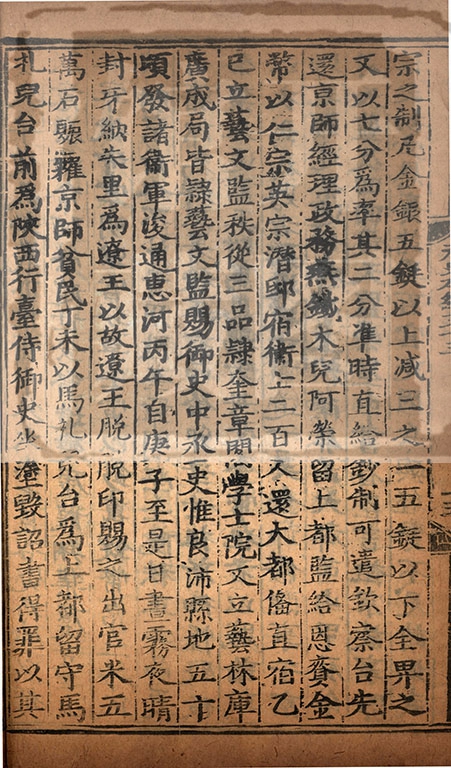 宗之制凡金銀五鋌以上减三之一五鋌以下全畀之
又以七分爲率其二分准時直給鈔制可遣欽察台先
還京師經理政務燕鐵木兒阿榮留上都監給恩賚金
幣以仁宗英宗潛邸宿衛士二百人還大都俻直宿乙
已立藝文監秩從三品隷奎章閣學士院又立藝林庫
廣成局皆隷藝文監賜御史中丞史惟良沛縣地五十
頃發諸衛軍浚通惠河丙午自庚子至是日晝霧夜晴
封牙納失里爲遼王以故遼王脫脫印賜之出官米五
萬石賑糶京師貧民丁未以馬札兒台爲上都留守馬
札兒台前爲陝西行臺侍御史坐塗毀詔書得罪以其